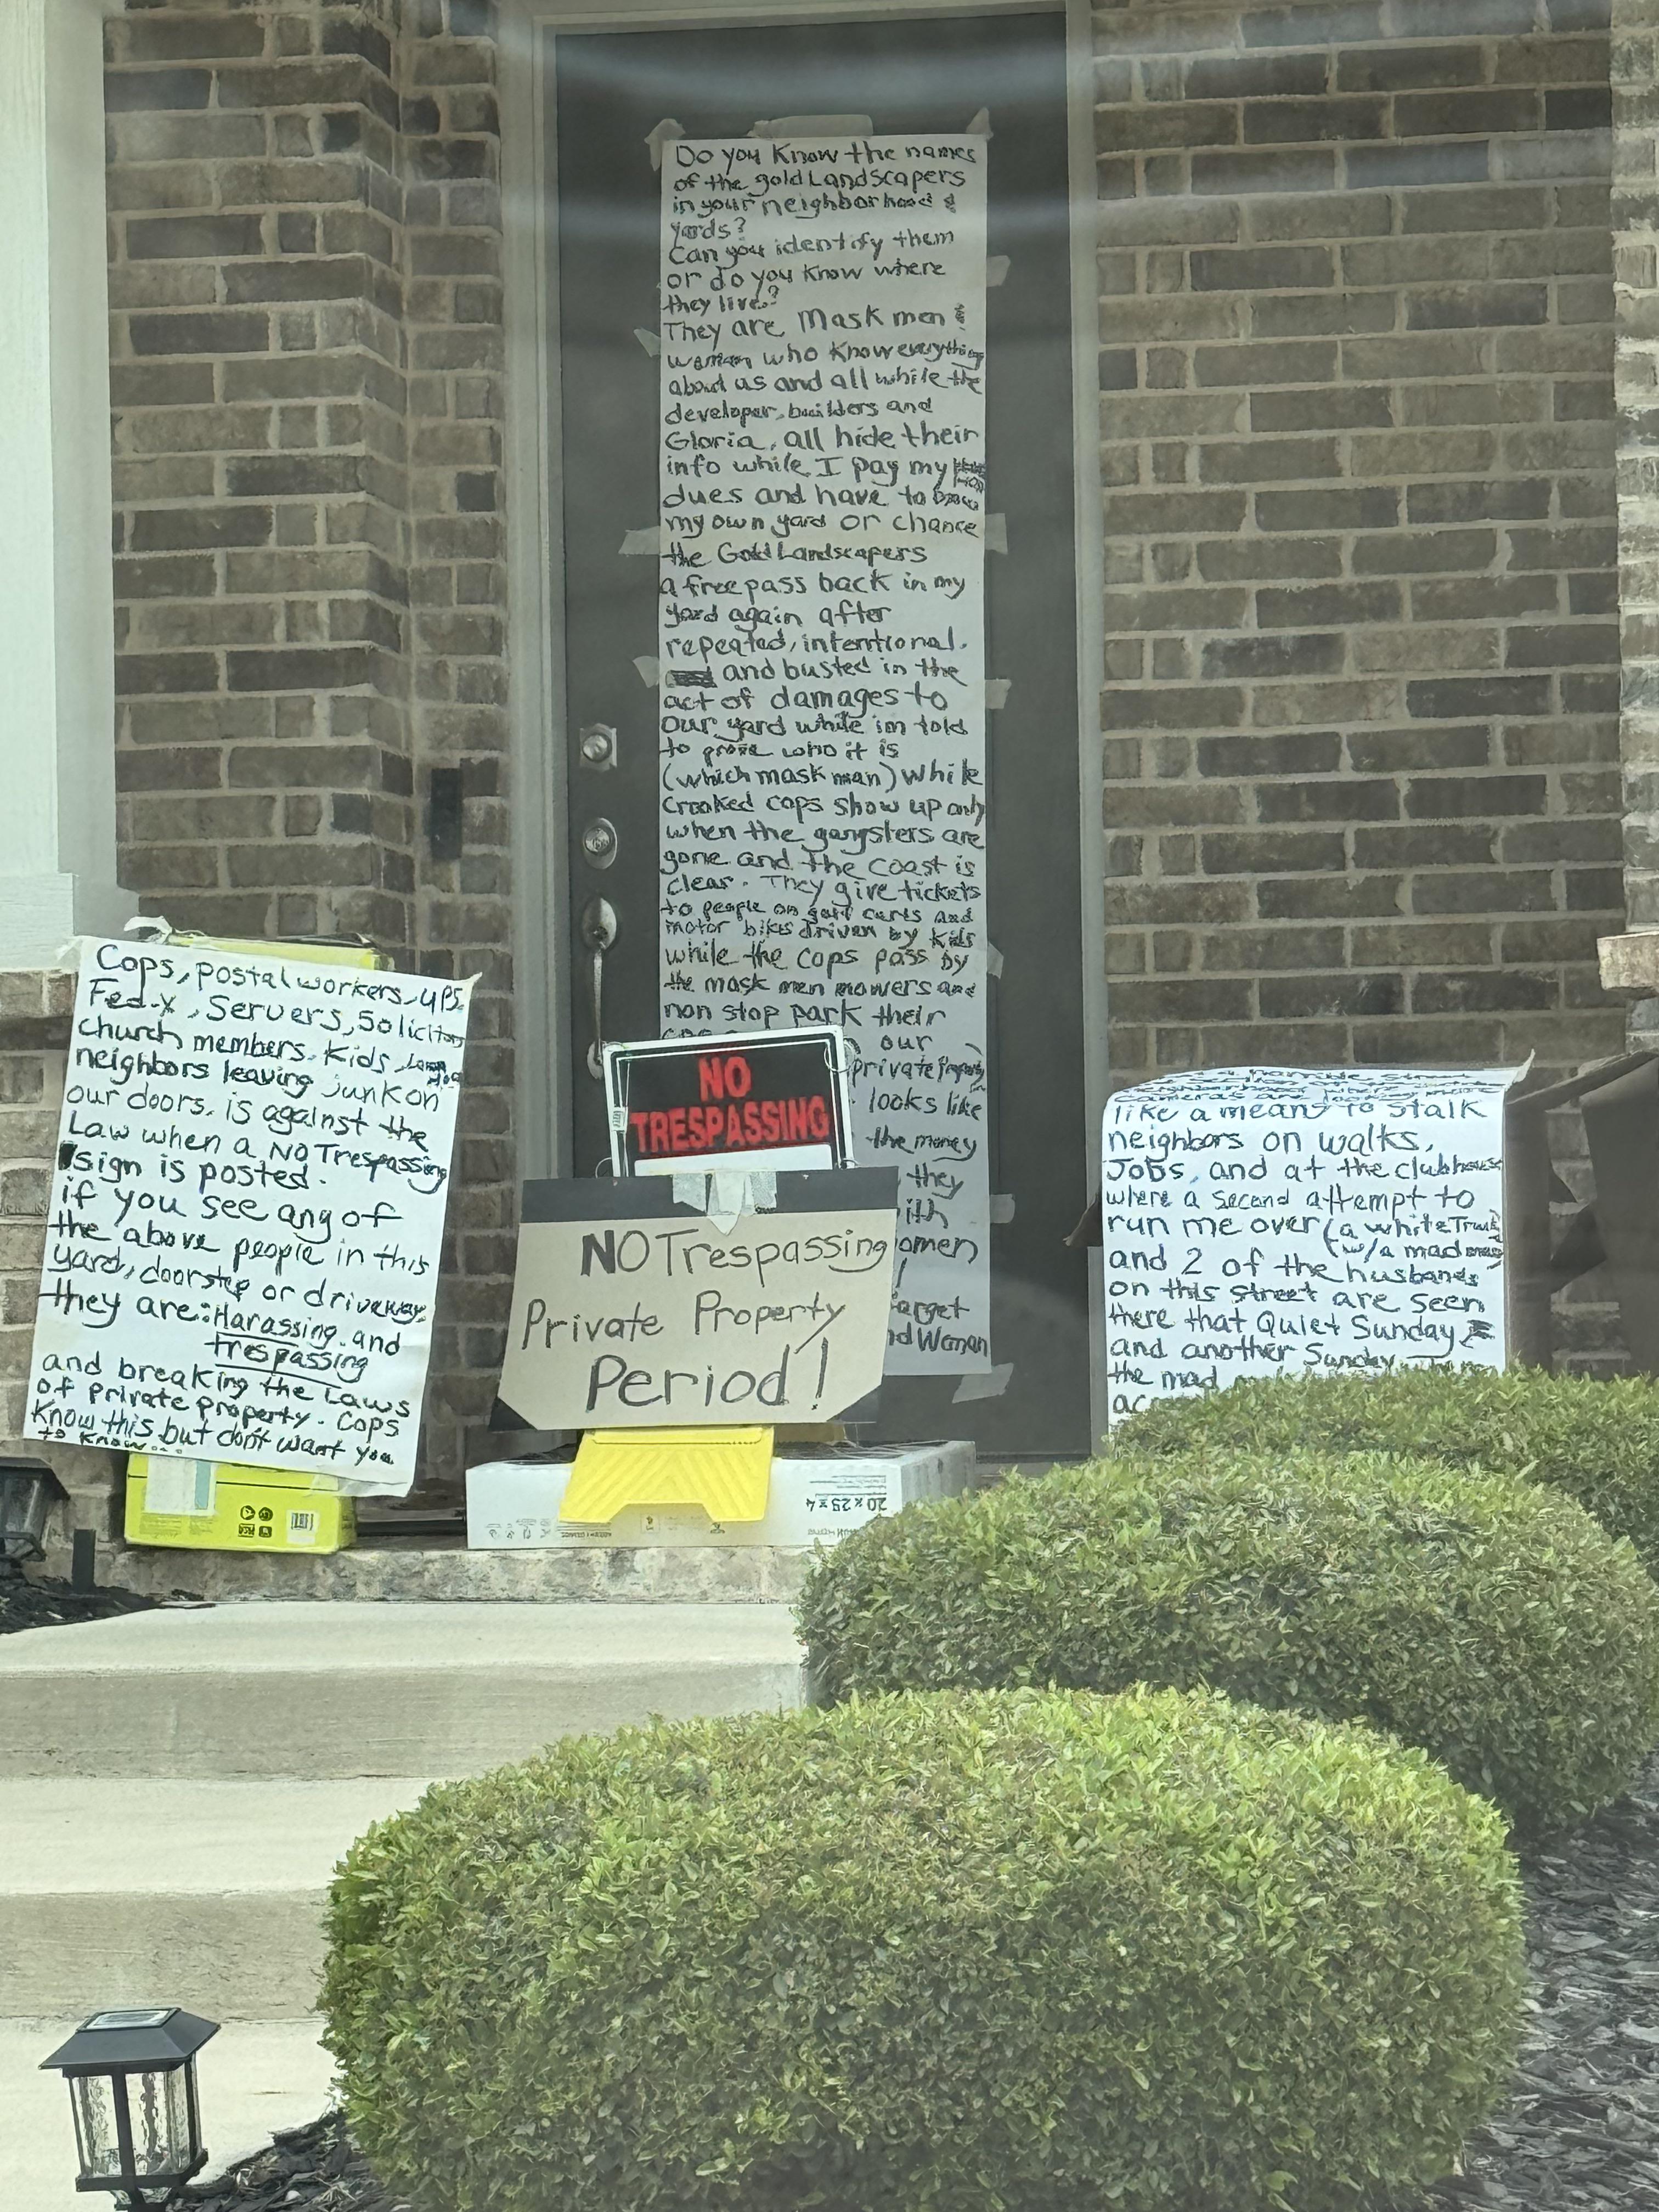 Do you Know the names
of the gold Landscapers
in your neighborhood &
yards?
Can you identify them
or do you know where
they live?
They are Mask men &
woman who Know everything
about us and all while the
developer, builders and
Gloria, all hide their
info while I pay my
dues and have to
my own yard or chance
the Gold Landscapers
a free pass back in my
yard again after
repeated, intentional.
and busted in the
act of damages to
our yard while im told
to prove who it is
(which mask man) while
Crooked cops show up only
when the gangsters are
gone and the coast is
clear. They give tickets
to people on golf carts and
motor bikes driven by kids
while the cops pass by
the mask men mowers and
non stop park their
our
private Property
looks like
the money
they
ith
omen
!
arget
nd Woman
Cops, postal workers, UPS,
Fed-x, Servers, Solicitors
church members, Kids,
neighbors leaving junk on
our doors, is against the
Law when a NO Trespassing
sign is posted.
if you see any of
the above people in this
yard, doorstep or driveway,
they are: Harassing and
trespassing
and breaking the Laws
of private property. Cops
Know this but don't want you
to know...
NO
TRESPASSING
NO Trespassing
Private Property
Period!
20x25x4
cameras are looking more
like a means to stalk
neighbors on walks,
Jobs, and at the clubhouse
where a second attempt to
run me over (a white Truck
w/a mad man)
and 2 of the husbands
on this street are seen
there that Quiet Sunday
and another Sunday
the mad